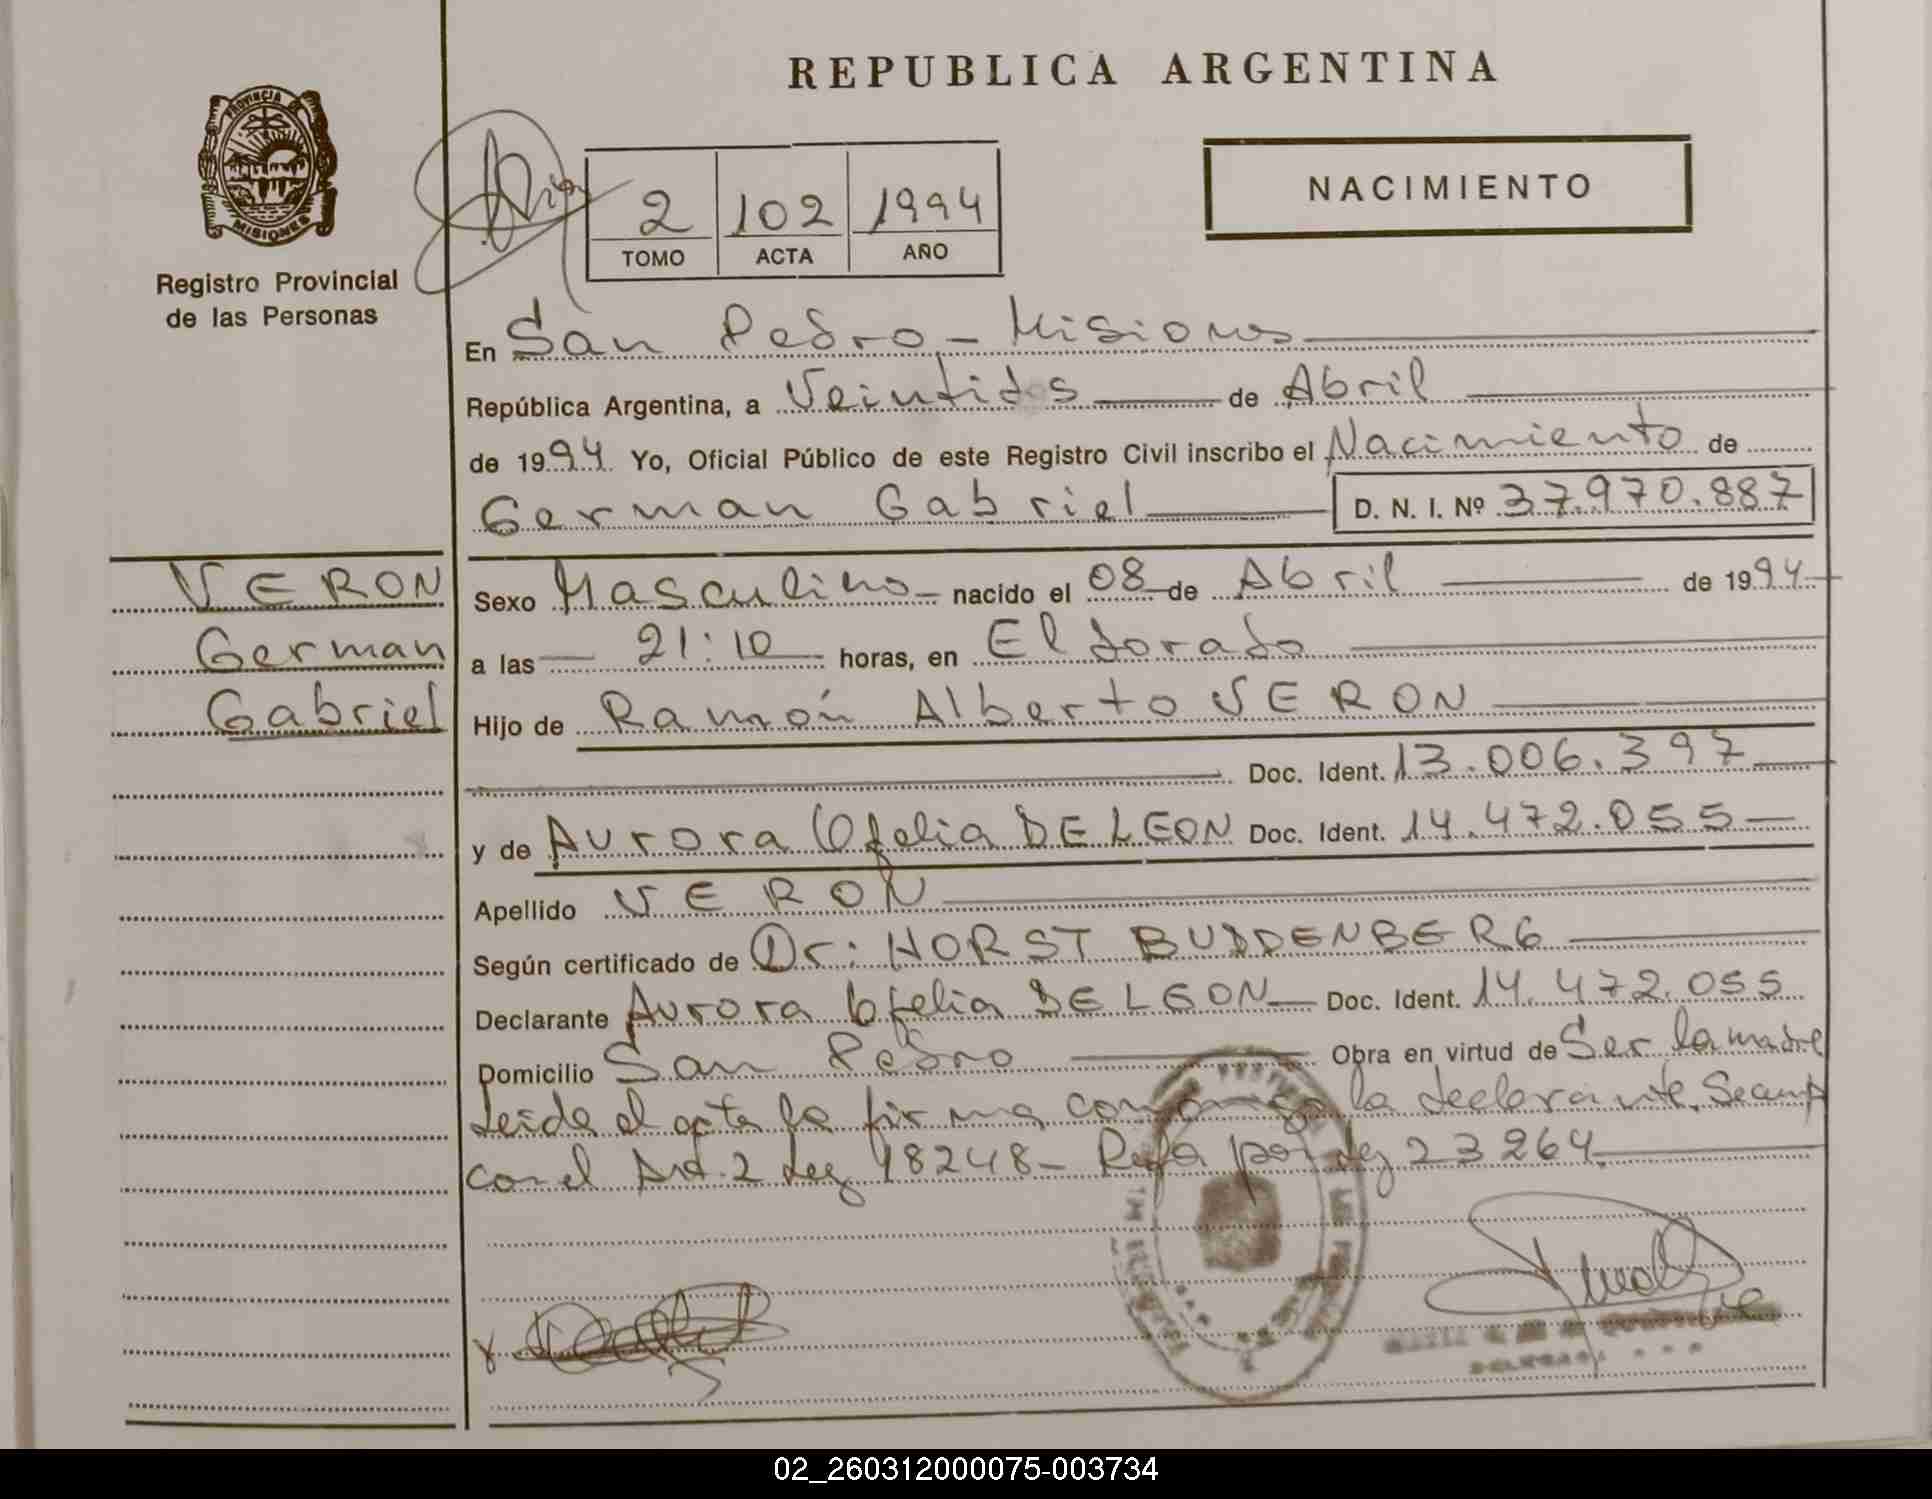 REPUBLICA ARGENTINA
PROVINCIA DE
MISIONES
Registro Provincial
de las Personas
2 102 1994
TOMO ACTA AÑO
NACIMIENTO
En San Pedro - Misiones
República Argentina, a Veintidos de Abril
de 1994 Yo, Oficial Público de este Registro Civil inscribo el Nacimiento de
German Gabriel D. N. I. Nº 37.970.887
VERON
German
Gabriel
Sexo Masculino nacido el 08 de Abril de 1994
a las 21:10 horas, en Eldorado
Hijo de Ramón Alberto VERON
Doc. Ident. 13.006.397
y de Aurora Ofelia DE LEON Doc. Ident. 14.472.055
Apellido VERON
Según certificado de Dr: HORST BUDDENBERG
Declarante Aurora Ofelia DE LEON Doc. Ident. 14.472.055
Domicilio San Pedro Obra en virtud de Ser la madre
Leida el acta la firma conmigo la declarante. Se cump
con el Art. 2 Ley 18248 - por Ley 23264.
02_260312000075-003734